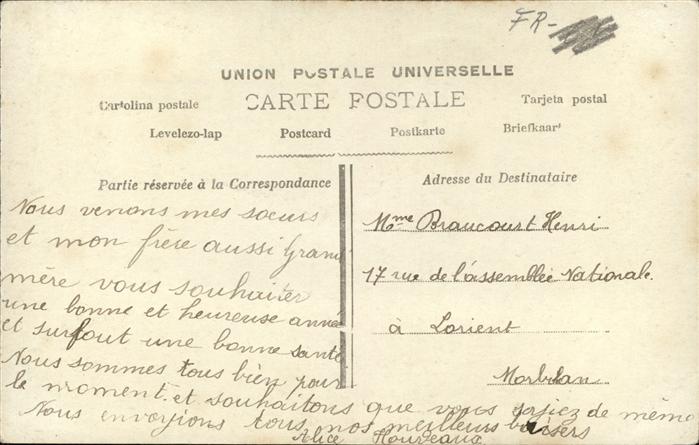 FR-
UNION POSTALE UNIVERSELLE
CARTE POSTALE
Cartolina postale
Tarjeta postal
Levelezo-lap
Postcard
Postkarte
Briefkaart
Partie réservée à la Correspondance
Nous venons mes sœurs
et mon frère aussi Grand
mère vous souhaiter
une bonne et heureuse année
et surtout une bonne santé
Nous sommes tous bien pour
le moment et souhaitons que vous soyiez de même
Nous envoyions tous nos meilleurs baisers
Alice
Adresse du Destinataire
Mme Braucourt Henri
17 rue de l'assemblée Nationale.
à Lorient
Morbihan